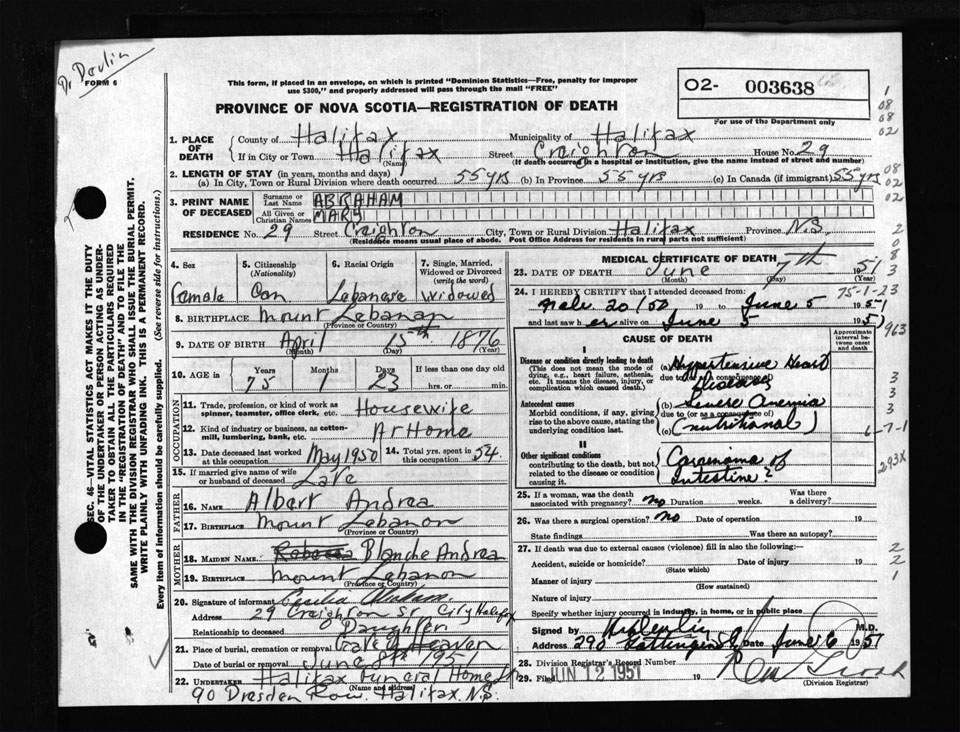 Dr Devlin
FORM 6
This form, if placed in an envelope, on which is printed "Dominion Statistics—Free, penalty for improper
use $300," and properly addressed will pass through the mail "FREE"
PROVINCE OF NOVA SCOTIA—REGISTRATION OF DEATH
O2- 003638
For use of the Department only
1. PLACE OF DEATH
County of Halifax Municipality of Halifax
If in City or Town Halifax (Name) Street Creighton House No. 29
(If death occurred in a hospital or institution, give the name instead of street and number)
2. LENGTH OF STAY (in years, months and days)
(a) In City, Town or Rural Division where death occurred 55 yrs (b) In Province 55 yrs (c) In Canada (if immigrant) 55 yrs
3. PRINT NAME OF DECEASED
Surname or Last Name ABRAHAM
All Given or Christian Names MARY
RESIDENCE No. 29 Street Creighton City, Town or Rural Division Halifax Province N.S.
(Residence means usual place of abode. Post Office Address for residents in rural parts not sufficient)
4. Sex
Female
5. Citizenship (Nationality)
Can
6. Racial Origin
Lebanese
7. Single, Married, Widowed or Divorced (write the word)
Widowed
8. BIRTHPLACE Mount Lebanan
(Province or Country)
9. DATE OF BIRTH April 15th 1876
(Month) (Day) (Year)
10. AGE in Years 75 Months 1 Days 23 If less than one day old hrs. or min.
OCCUPATION
11. Trade, profession, or kind of work as spinner, teamster, office clerk, etc. Housewife
12. Kind of industry or business, as cotton-mill, lumbering, bank, etc. At Home
13. Date deceased last worked at this occupation May 1950
14. Total yrs. spent in this occupation 54
15. If married give name of wife or husband of deceased Late
FATHER
16. NAME Albert Andrea
17. BIRTHPLACE Mount Lebanon
(Province or Country)
MOTHER
18. MAIDEN NAME Rebecca Blanche Andrea
19. BIRTHPLACE Mount Lebanon
(Province or Country)
20. Signature of informant Cecilia
Address 29 Creighton St City Halifax
Relationship to deceased Daughter
21. Place of burial, cremation or removal Gate of Heaven
Date of burial or removal June 8th 1951
22. UNDERTAKER Halifax Funeral Home
(Name and address)
90 Dresden Row. Halifax. N.S.
MEDICAL CERTIFICATE OF DEATH
23. DATE OF DEATH June 7th 1951
(Month) (Day)
75-1-23
24. I HEREBY CERTIFY that I attended deceased from:
20/50 19 to June 5 1951
and last saw her alive on June 5 1951
CAUSE OF DEATH
Approximate interval between onset and death
I
Disease or condition directly leading to death
(This does not mean the mode of dying, e.g., heart failure, asthenia, etc. It means the disease, injury, or complication which caused death.)
(a) Hypertensive Heart
due to (or as a consequence of)
Disease
Antecedent causes
Morbid conditions, if any, giving rise to the above cause, stating the underlying condition last.
(b) Severe Anemia
due to (or as a consequence of)
(c) (nutritional)
II
Other significant conditions
contributing to the death, but not related to the disease or condition causing it.
Carcinoma of
Intestine?
25. If a woman, was the death associated with pregnancy? No Duration weeks. Was there a delivery?
26. Was there a surgical operation? No Date of operation 19
State findings Was there an autopsy?
27. If death was due to external causes (violence) fill in also the following:-
Accident, suicide or homicide? Date of injury 19
(State which)
Manner of injury
(How sustained)
Nature of injury
Specify whether injury occurred in industry, in home, or in public place
Signed by Devlin M.D.
Address 290 Gottingen St Date June 6 1951
28. Division Registrar's Record Number
29. Filed JUN 12 1951 19
(Division Registrar)
SEC. 46—VITAL STATISTICS ACT MAKES IT THE DUTY
OF THE UNDERTAKER OR PERSON ACTING AS UNDERTAKER
TO OBTAIN ALL THE PARTICULARS REQUIRED
IN THE "REGISTRATION OF DEATH" AND TO FILE THE
SAME WITH THE DIVISION REGISTRAR WHO SHALL ISSUE THE BURIAL PERMIT.
WRITE PLAINLY WITH UNFADING INK. THIS IS A PERMANENT RECORD.
Every item of information should be carefully supplied. (See reverse side for instructions.)
1
08
08
02
08
02
2
0
8
3
963
3
3
3
6-7-1
293X
2
2
1